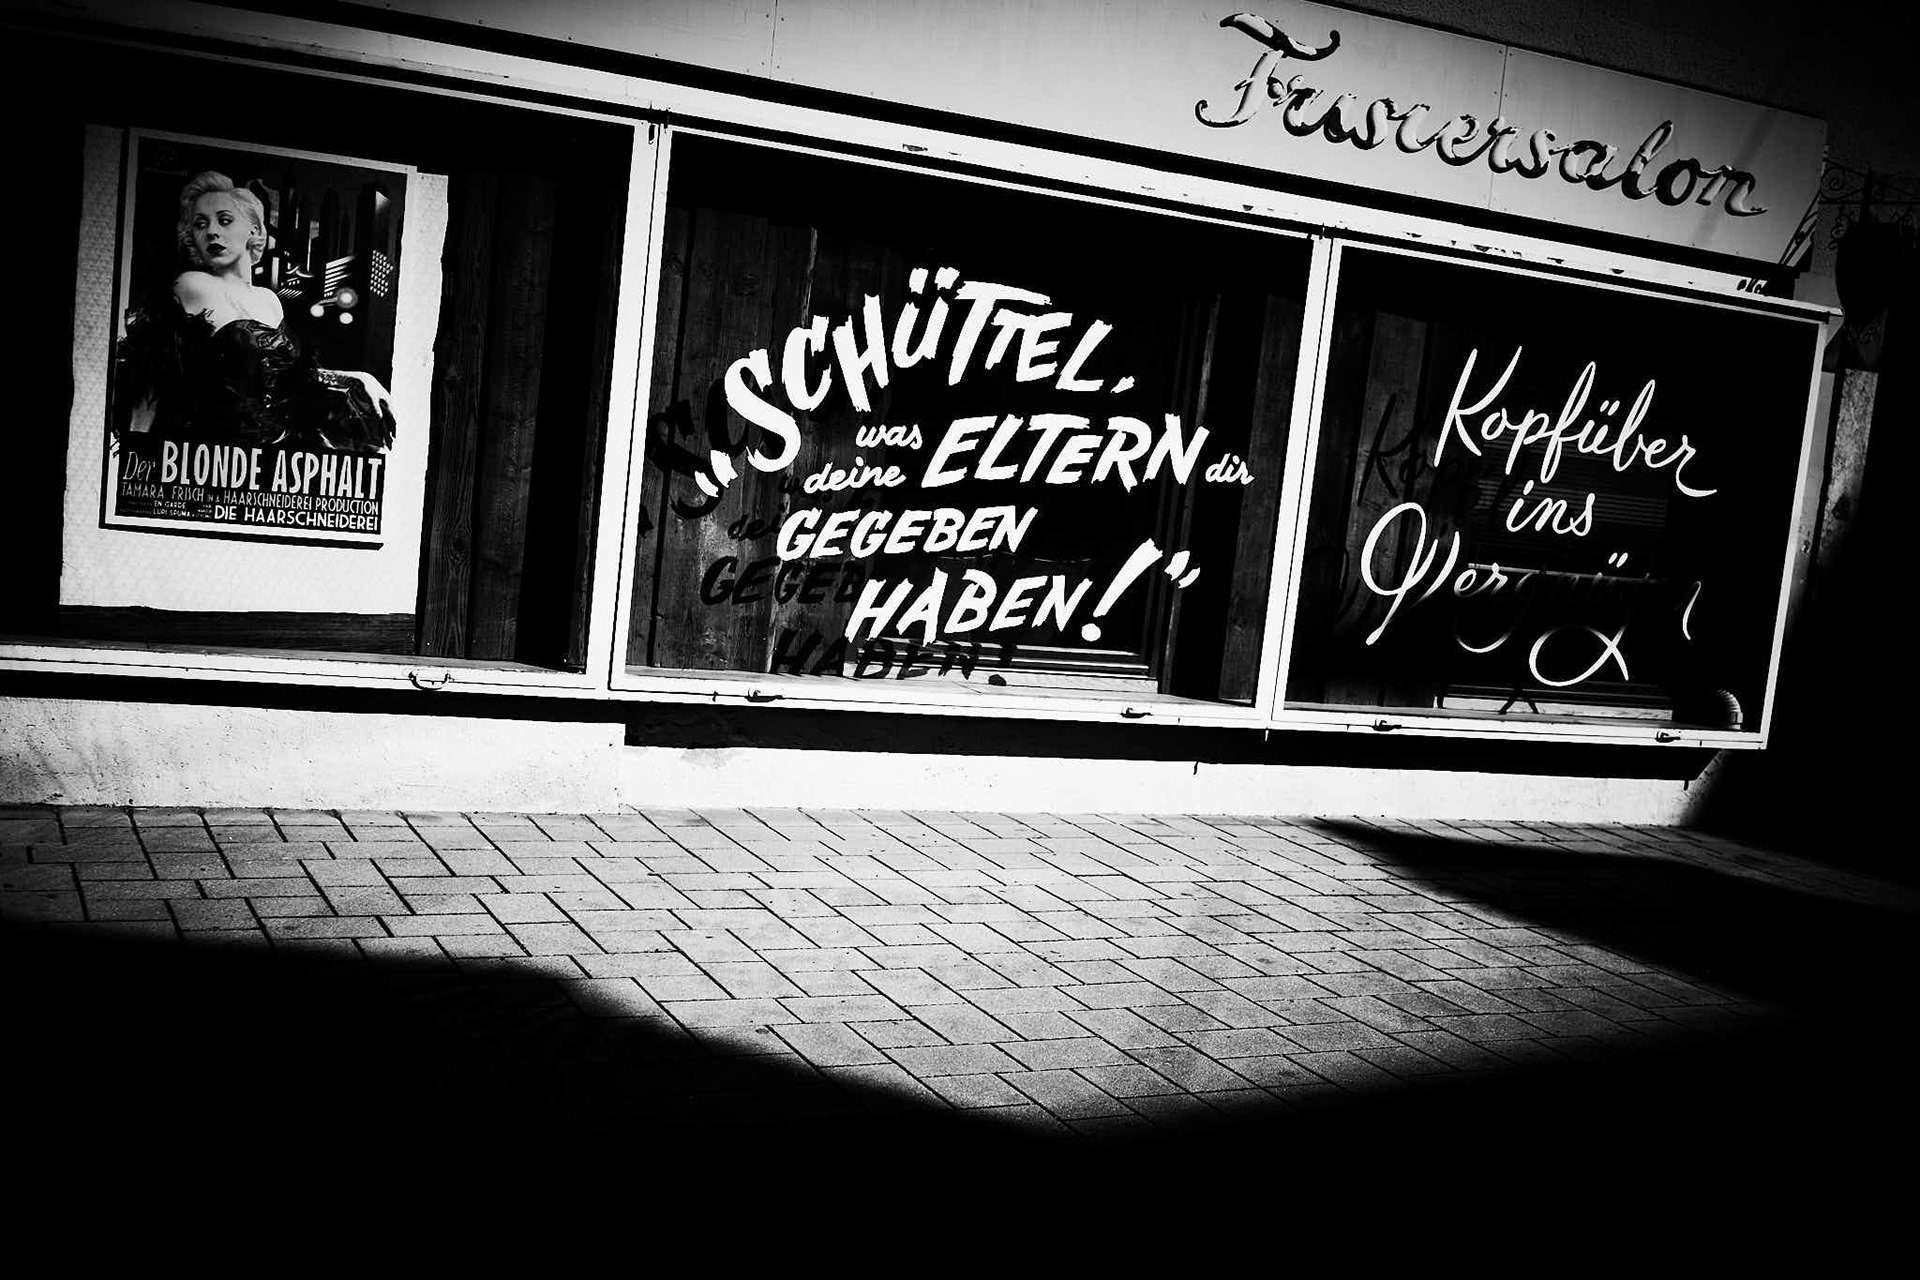 Frisiersalon
Der BLONDE ASPHALT
TAMARA FRISCH IN A HAARSCHNEIDEREI PRODUCTION
EN GARDE
DIE HAARSCHNEIDEREI
„SCHÜTTEL,
was
deine ELTERN dir
GEGEBEN
HABEN!“
Kopfüber
ins